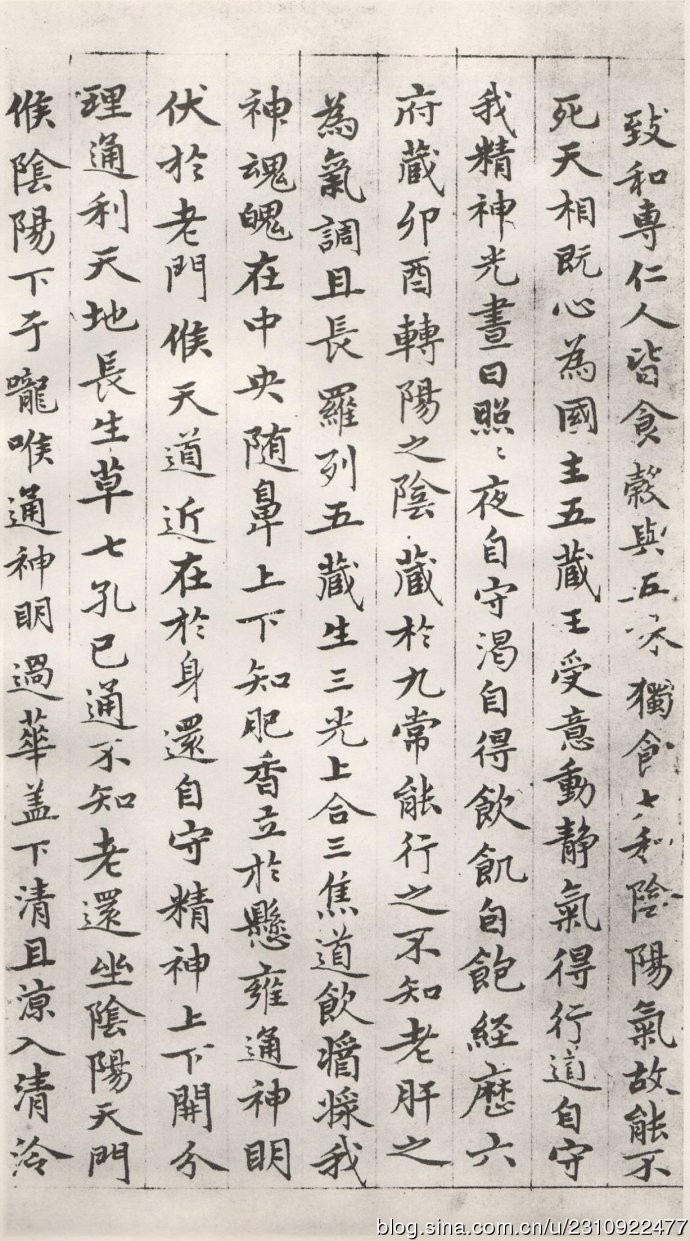 致和專仁人皆食糓與五味獨食太和陰陽氣故能不
死天相既心為國主五蔵王受意動静氣得行道自守
我精神光晝日照〻夜自守渴自得飲飢自飽經歷六
府蔵卯酉轉陽之陰蔵於九常能行之不知老肝之
為氣調且長羅列五蔵生三光上合三焦道飲漿我
神魂魄在中央随鼻上下知肥香立於懸雍通神明
伏於老門候天道近在於身還自守精神上下開分
理通利天地長生草七孔已通不知老還坐陰陽天門
候陰陽下于嚨喉通神明過華盖下清且凉入清泠
blog.sina.com.cn/u/2310922477